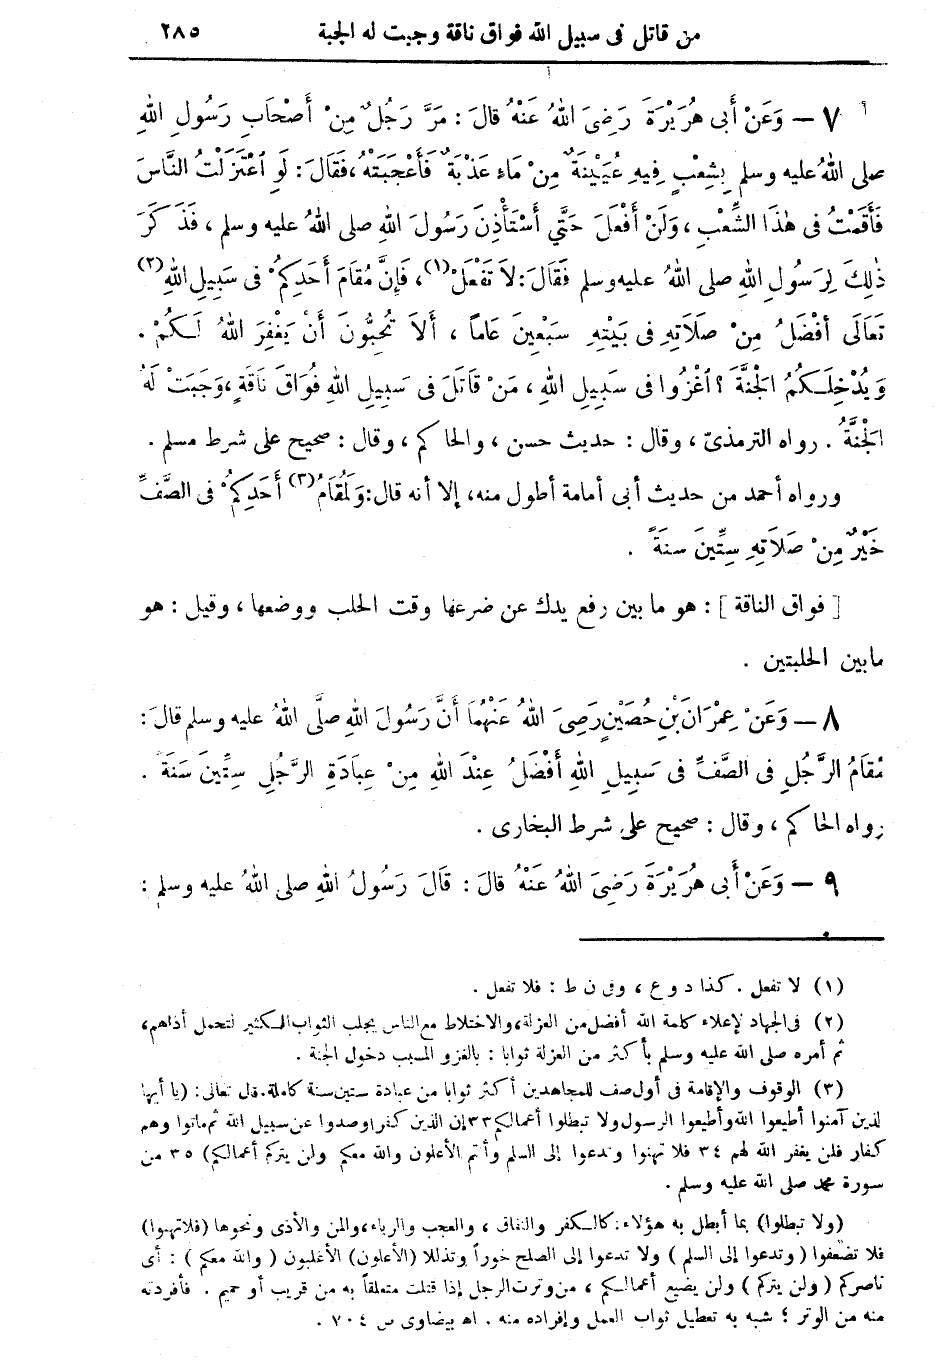 من قاتل فى سبيل الله فواق ناقة وجبت له الجنة ٢٨٥
٧ — وَعَنْ أَبِى هُرَيْرَةَ رَضِىَ اللهُ عَنْهُ قالَ : مَرَّ رَجُلٌ مِنْ أَصْحَابِ رَسُولِ اللهِ
صلى اللهُ عليه وسلم بِشِعْبٍ فِيهِ عُيَيْنَةٌ مِنْ مَاءٍ عَذْبَةٌ فَأَعْجَبَتْهُ ، فَقَالَ : لَوِ اعْتَزَلْتُ النَّاسَ
فَأَقَمْتُ فى هٰذَا الشِّعْبِ ، وَلَنْ أَفْعَلَ حَتَّى أَسْتَأْذِنَ رَسُولَ اللهِ صلى اللهُ عليه وسلم ، فَذَكَرَ
ذٰلِكَ لِرَسُولِ اللهِ صلى اللهُ عليه وسلم فَقَالَ : لاَ تَفْعَلْ (١) ، فَإِنَّ مُقَامَ أَحَدِكُمْ فى سَبِيلِ اللهِ (٢)
تَعَالَى أَفْضَلُ مِنْ صَلاَتِهِ فى بَيْتِهِ سَبْعِينَ عَاماً ، أَلاَ تُحِبُّونَ أَنْ يَغْفِرَ اللهُ لَكُمْ .
وَيُدْخِلَكُمُ الْجَنَّةَ ؟ اغْزُوا فى سَبِيلِ اللهِ ، مَنْ قَاتَلَ فى سَبِيلِ اللهِ فُوَاقَ نَاقَةٍ ، وَجَبَتْ لَهُ
الْجَنَّةُ . رواه الترمذىّ ، وقال : حديث حسن ، والحاكم ، وقال : صحيح على شرط مسلم .
ورواه أحمد من حديث أبى أمامة أطول منه ، إلا أنه قال : وَلَمُقَامُ (٣) أَحَدِكُمْ فى الصَّفِّ
خَيْرٌ مِنْ صَلاَتِهِ سِتِّينَ سَنَةً .
[ فواق الناقة ] : هو ما بين رفع يدك عن ضرعها وقت الحلب ووضعها ، وقيل : هو
مابين الحلبتين .
٨ — وَعَنْ عِمْرَانَ بْنِ حُصَيْنٍ رَضِىَ اللهُ عَنْهُمَا أَنَّ رَسُولَ اللهِ صلَّى اللهُ عليه وسلم قالَ :
مُقَامُ الرَّجُلِ فى الصَّفِّ فى سَبِيلِ اللهِ أَفْضَلُ عِنْدَ اللهِ مِنْ عِبَادَةِ الرَّجُلِ سِتِّينَ سَنَةً .
رواه الحاكم ، وقال : صحيح على شرط البخارى .
٩ — وَعَنْ أَبِى هُرَيْرَةَ رَضِىَ اللهُ عَنْهُ قالَ : قَالَ رَسُولُ اللهِ صلى اللهُ عليه وسلم :
(١) لا تفعل . كذا د و ع ، وفى ن ط : فلا تفعل .
(٢) فى الجهاد لإعلاء كلمة الله أفضل من العزلة ، والاختلاط مع الناس يجلب الثواب الكثير لتحمل أذاهم ،
ثم أمره صلى الله عليه وسلم بأكثر من العزلة ثوابا : بالغزو المسبب دخول الجنة .
(٣) الوقوف والإقامة فى أول صف للمجاهدين أكثر ثوابا من عبادة ستين سنة كاملة . قال تعالى : (يا أيها
لذين آمنوا أطيعوا الله وأطيعوا الرسول ولا تبطلوا أعمالكم ٣٣ إن الذين كفروا وصدوا عن سبيل الله ثم ماتوا وهم
كفار فلن يغفر الله لهم ٣٤ فلا تهنوا وتدعوا إلى السلم وأنتم الأعلون والله معكم ولن يتركم أعمالكم) ٣٥ من
سورة محمد صلى الله عليه وسلم .
(ولا تبطلوا) بما أبطل به هؤلاء : كالكفر والنفاق ، والعجب والرياء ، والمن والأذى ونحوها (فلا تهنوا)
فلا تضعفوا ( وتدعوا إلى السلم ) ولا تدعوا إلى الصلح خوراً وتذللا (الأعلون) الأغلبون ( والله معكم ) : أى
ناصركم ( ولن يتركم ) ولن يضيع أعمالكم ، من وترت الرجل إذا قتلت متعلقاً به من قريب أو حميم . فأفردته
منه من الوتر ؛ شبه به تعطيل ثواب العمل وإفراده منه . اه بيضاوى س ٧٠٤ .